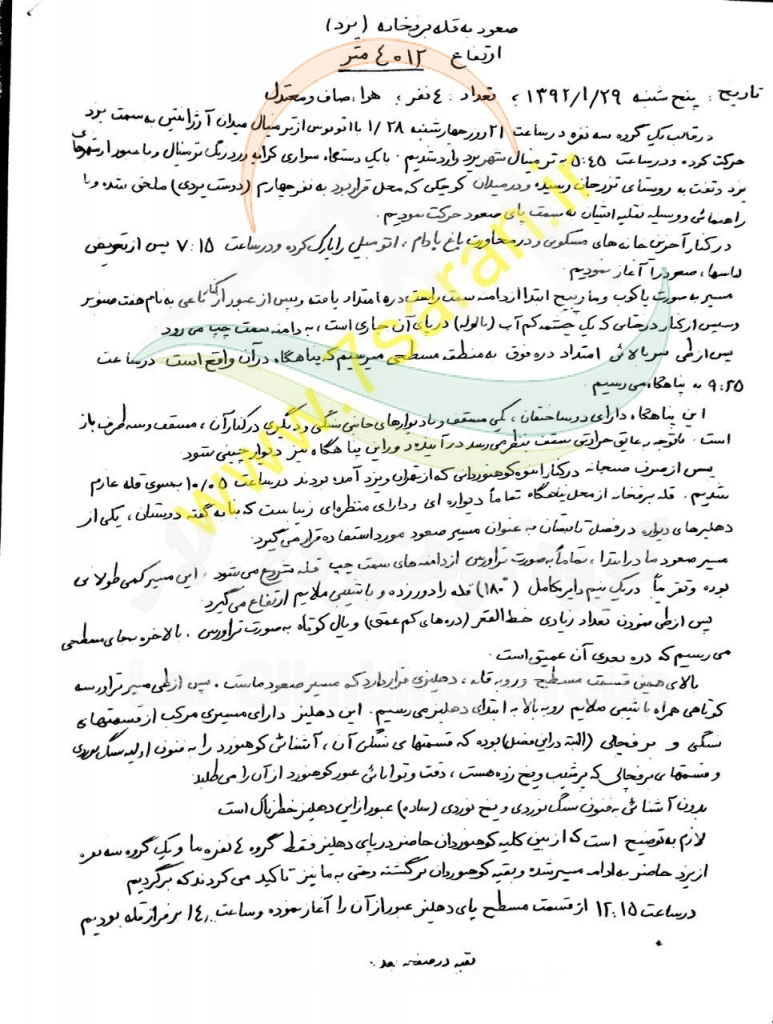 صعود به قله برفخانه (یزد)
ارتفاع ۴۰۱۲ متر
تاریخ: پنج شنبه ۱۳۹۲/۱/۲۹، تعداد: ۴ نفر، هوا: صاف و معتدل
در قالب یک گروه سه نفره در ساعت ۲۱ روز چهارشنبه ۱/۲۸ با اتوبوس از ترمینال میدان آرژانتین به سمت یزد
حرکت کرده و در ساعت ۵:۴۵ به ترمینال شهر یزد وارد شدیم. با یک دستگاه سواری کرایه زرد رنگ ترمینال و با عبور از شهرهای
یزد و تفت به روستای تزرجان رسیده و در میدان کوچکی که محل قرار بود به نفر چهارم (دوست یزدی) ملحق شده و با
راهنمائی و وسیله نقلیه ایشان به سمت پای صعود حرکت نمودیم.
در کنار آخرین خانه های مسکونی و در مجاورت باغ بادام، اتومبیل را پارک کرده و در ساعت ۷:۱۵ پس از تعویض
لباسها، صعود را آغاز نمودیم.
مسیر به صورت پاکوب و مارپیچ ابتدا از دامنه سمت راست دره امتداد یافته و پس از عبور از کنار باغی به نام هفت صنوبر
و سپس از کنار درختانی که یک چشمه کم آب (با لوله) در پای آن جاری است، به دامنه سمت چپ می رود
پس از طی سربالائی امتداد دره فوق به منطقه مسطحی میرسیم که پناهگاه در آن واقع است در ساعت
۹:۲۵ به پناهگاه می رسیم.
این پناهگاه دارای دو ساختمان، یکی مسقف و با دیوارهای جانبی سنگی و دیگری در کنار آن، مسقف و سه طرف باز
است. باتوجه به عایق حرارتی سقف بنظر می رسد در آینده دور این پناهگاه نیز دیوار چینی شود
پس از صرف صبحانه در کنار انبوه کوهنوردانی که از تهران و یزد آمده بودند در ساعت ۱۰/۰۵ بسوی قله عازم
شدیم. قله برفخانه از محل پناهگاه تماماً دیواره ای و دارای منظره ای زیبا است که بنا به گفته دوستان، یکی از
دهلیزهای دیواره در فصل تابستان به عنوان مسیر صعود مورد استفاده قرار می گیرد.
مسیر صعود ما در ابتدا، تماماً به صورت تراورس از دامنه های سمت چپ قله شروع می شود، این مسیر کمی طولانی
بوده و تقریباً در یک نیم دایره کامل (۱۸۰°) قله را دور زده و با شیبی ملایم ارتفاع می گیرد.
پس از طی نمودن تعداد زیادی خط القعر (دره های کم عمق) و یال کوتاه به صورت تراورس، بالاخره به جای مسطحی
می رسیم که دره بعدی آن عمیق است.
بالای همین قسمت مسطح و رو به قله، دهلیزی قرار دارد که مسیر صعود ماست. پس از طی مسیر تراورسه
کوتاهی همراه با شیبی ملایم رو به بالا به ابتدای دهلیز می رسیم. این دهلیز دارای مسیری مرکب از قسمتهای
سنگی و برفچالی (البته در این فصل) بوده که قسمتهای سنگی آن، آشنائی کوهنورد را به فنون اولیه سنگ نوردی
و قسمتهای برفچالی که پرشیب و یخ زده هست، دقت و توانائی عبور کوهنورد از آن را می طلبد
بدون آشنائی به فنون سنگ نوردی و یخ نوردی (ساده) عبور از این دهلیز خطرناک است
لازم به توضیح است که از بین کلیه کوهنوردان حاضر در پای دهلیز فقط گروه ۴ نفره ما و یک گروه سه نفره
از یزد حاضر به ادامه مسیر شده و بقیه کوهنوردان برگشته و حتی به ما نیز تاکید می کردند که برگردیم
در ساعت ۱۲:۱۵ از قسمت مسطح پای دهلیز عبور از آن را آغاز نموده و ساعت ۱۴/۰۰ بر فراز قله بودیم
بقیه در صفحه بعد
www.7saran.ir